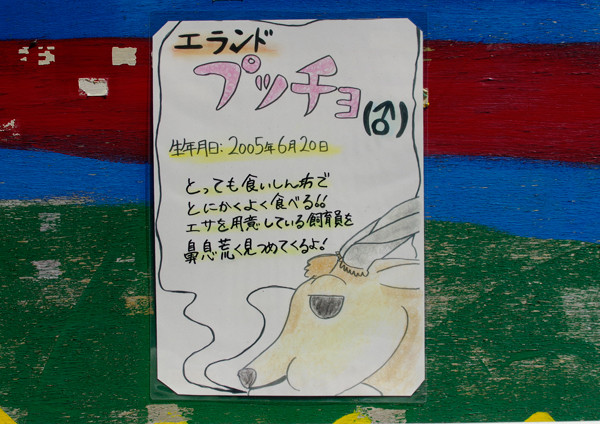 エランド
プッチョ(♂)
生年月日:2005年6月20日
とっても食いしん坊で
とにかくよく食べる!!
エサを用意している飼育員を
鼻息荒く見つめてくるよ!